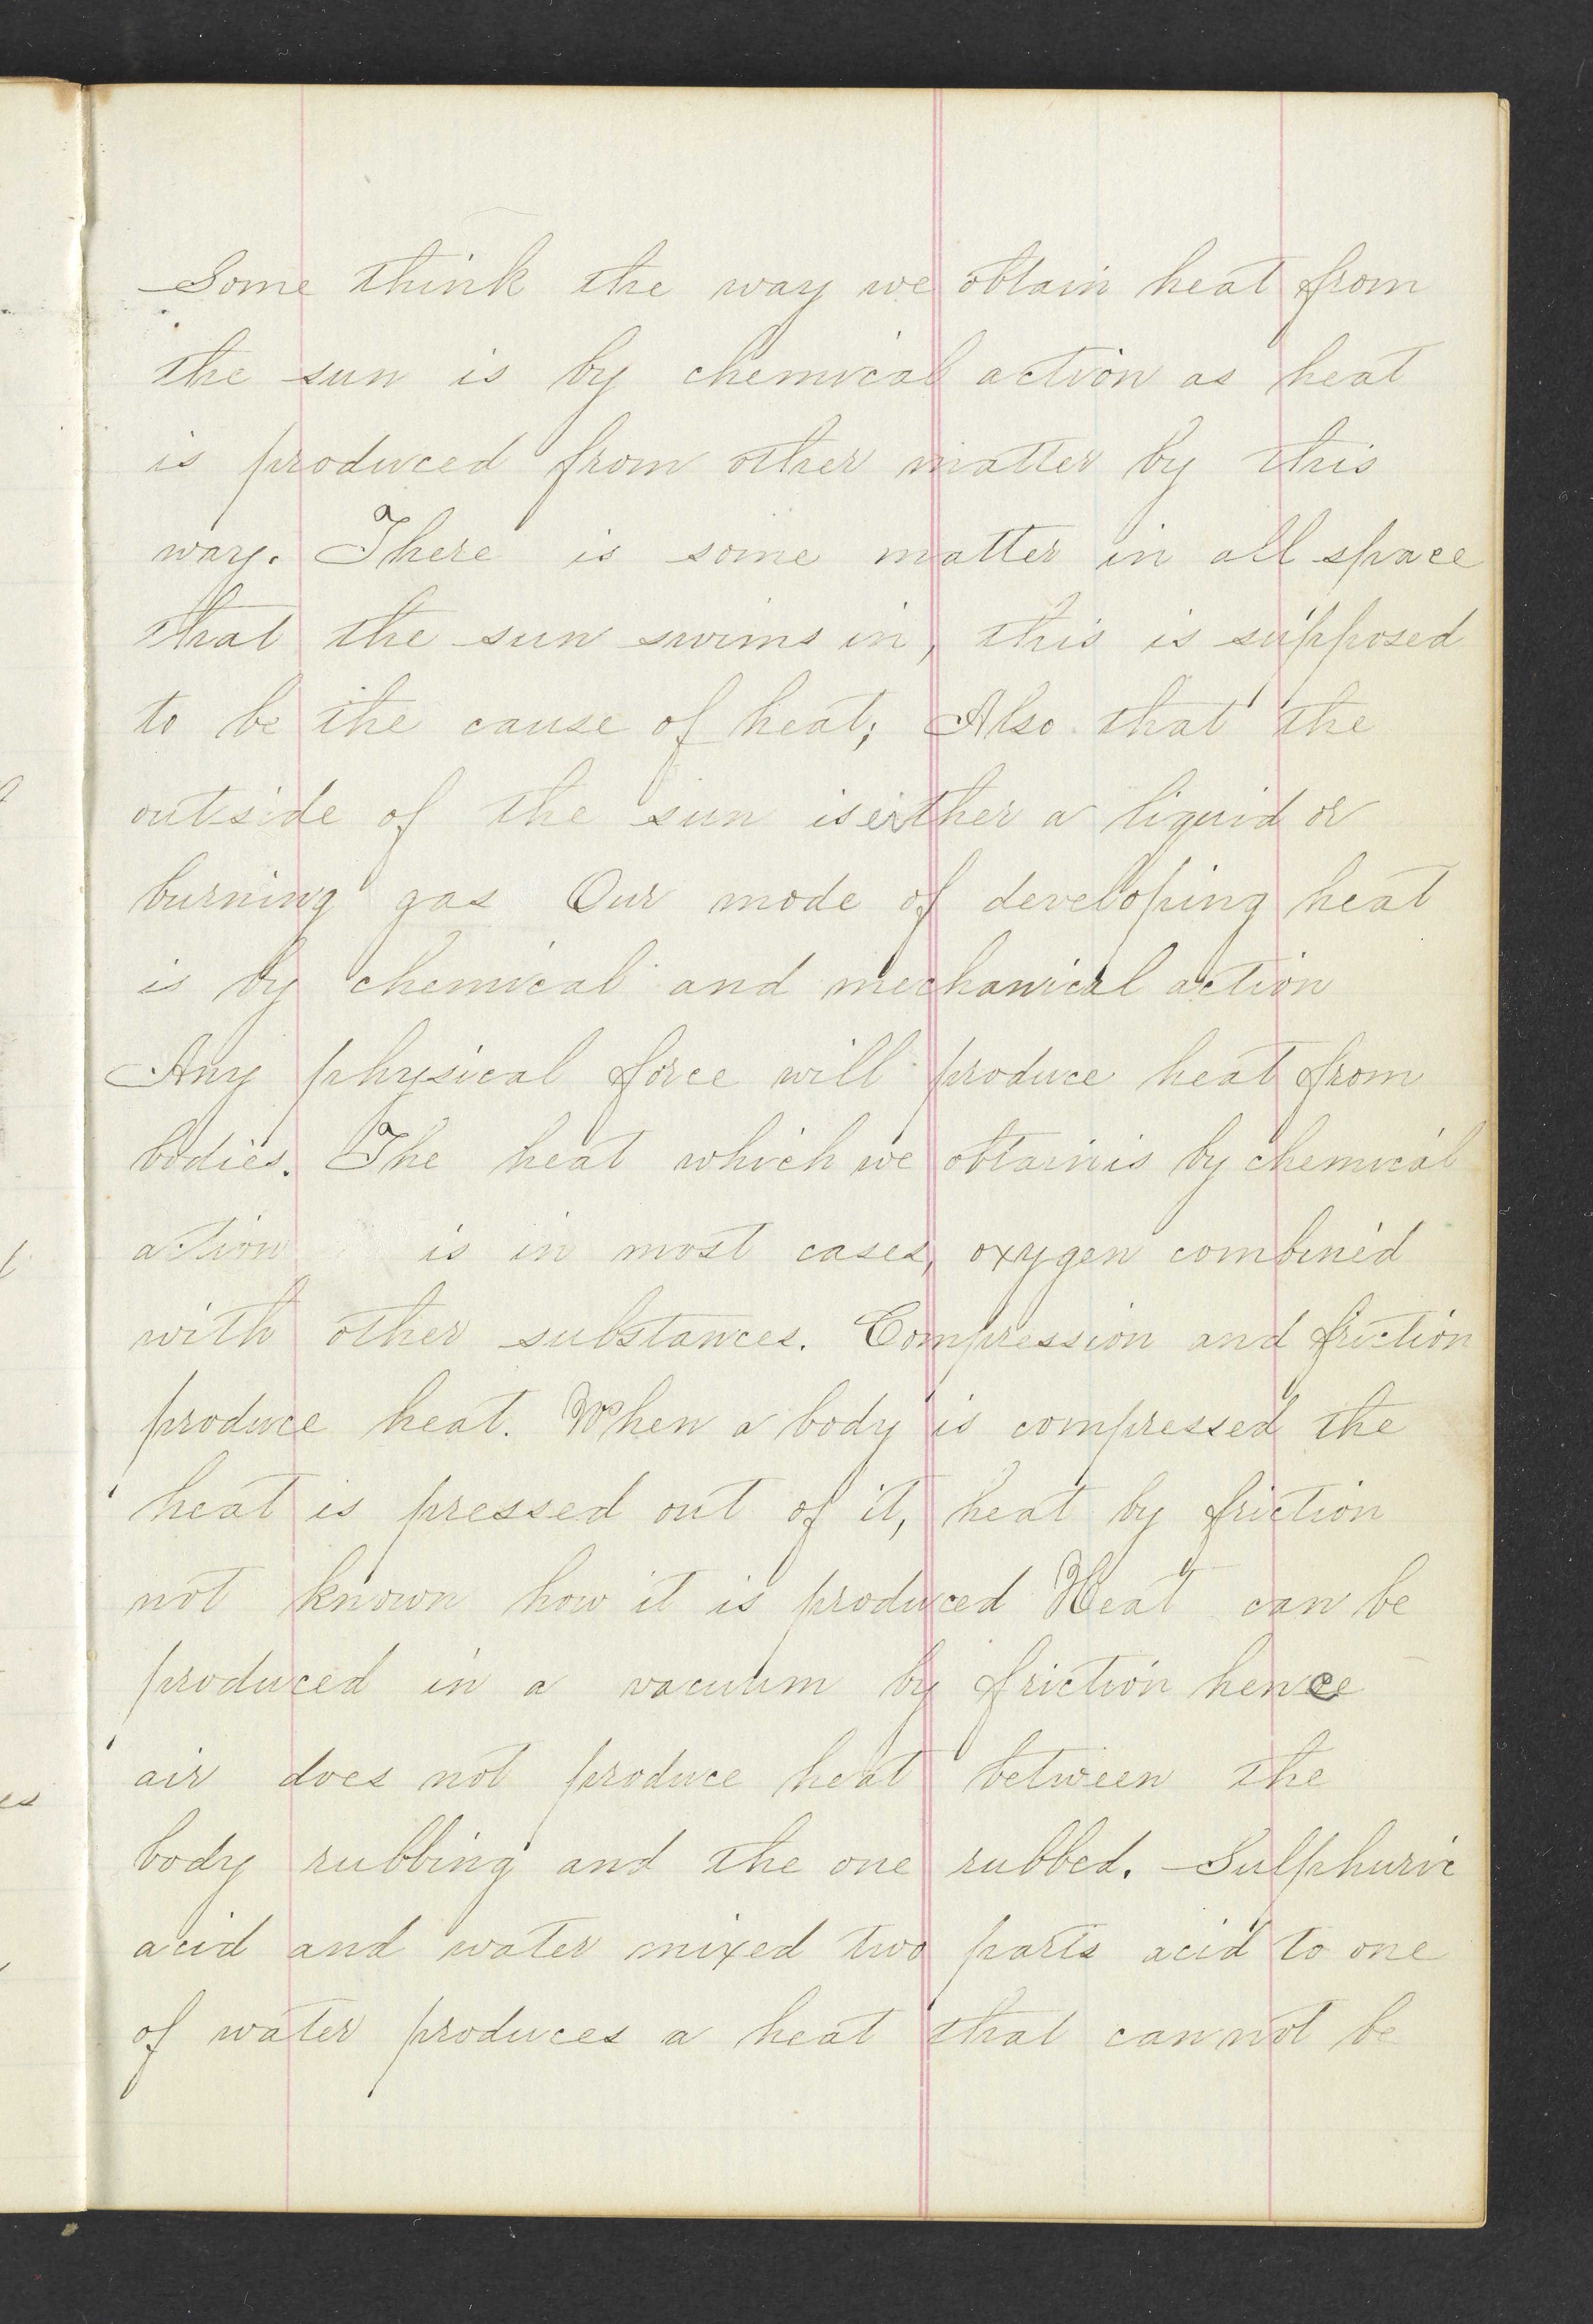 Some think the way we obtain heat from
the sun is by chemical action as heat
is produced from other matter by this
way. There is some matter in all space
that the sun swims in, this is supposed
to be the cause of heat; Also that the
outside of the sun is either a liquid or
burning gas Our mode of developing heat
is by chemical and mechanical action
Any physical force will produce heat from
bodies. The heat which we obtain is by chemical
action is in most cases, oxygen combined
with other substances. Compression and friction
produce heat. When a body is compressed the
heat is pressed out of it, heat by friction
not known how it is produced Heat can be
produced in a vacuum by friction hence
air does not produce heat between the
body rubbing and the one rubbed. Sulphuric
acid and water mixed two parts acid to one
of water produces a heat that cannot be